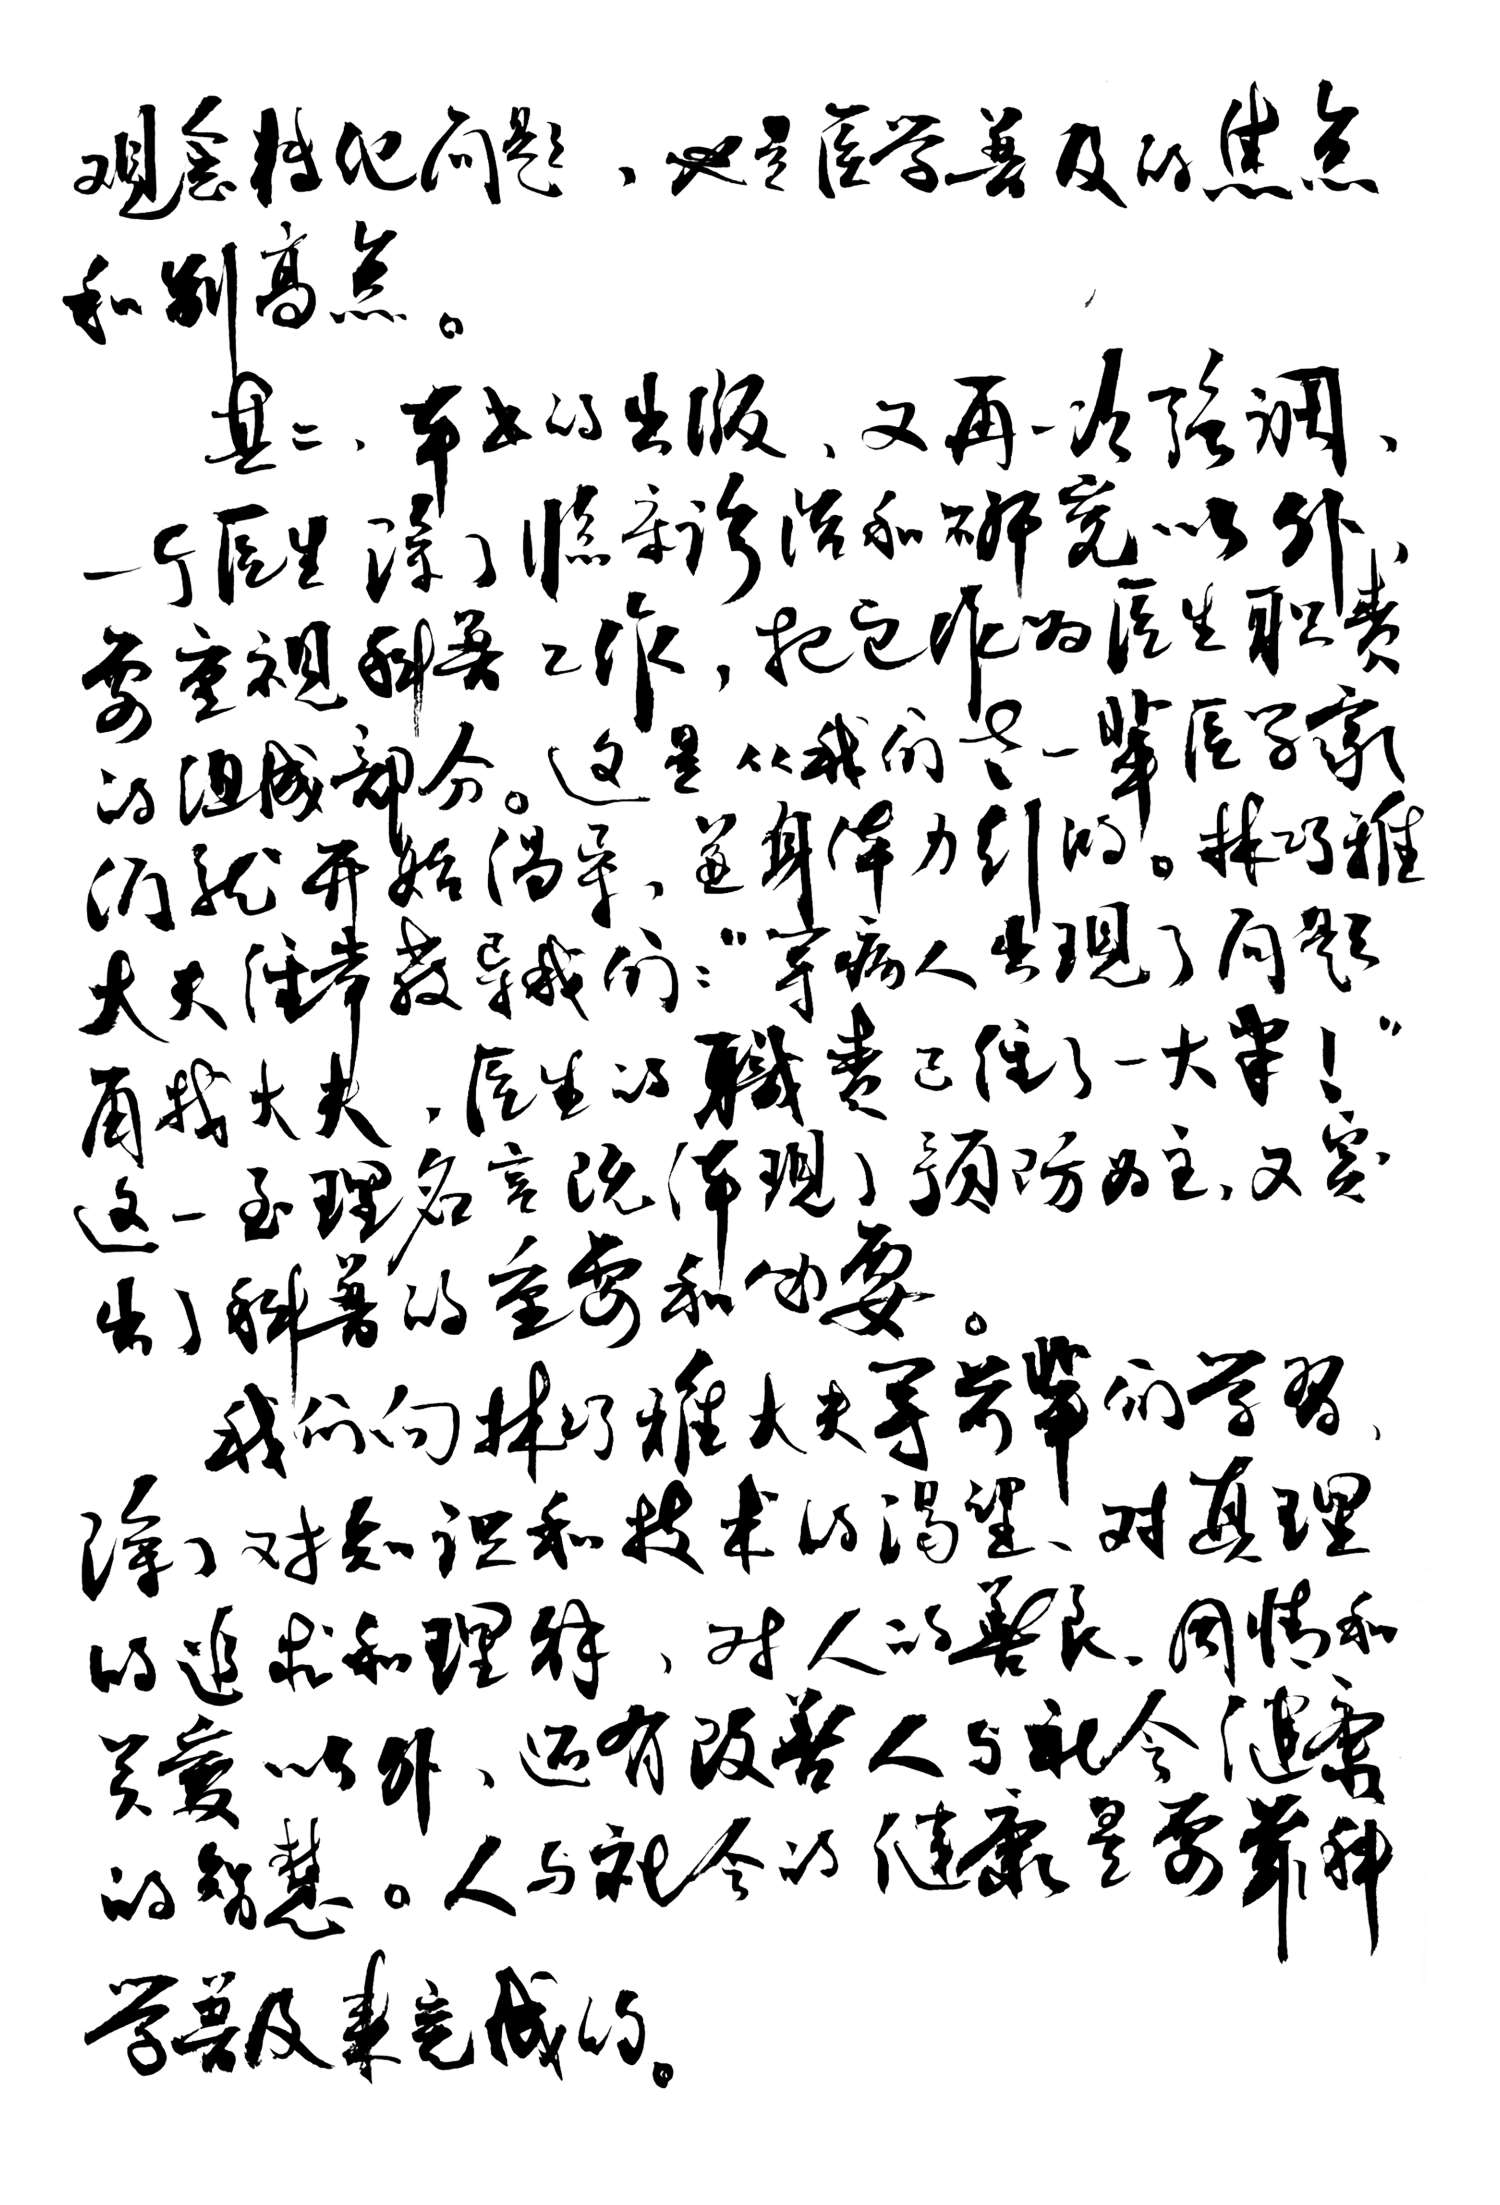 观念转化问题，也是医学普及的焦点
和制高点。
其二、本书的出版，又再一次强调，
一个医生除了临床诊治和研究以外，
要重视科普工作，把它作为医生职责
的组成部分。这是从我们老一辈医学家
们就开始倡导、并身体力行的。林巧稚
大夫经常教导我们：“等病人出现了问题
再找大夫，医生的職责已经了一大半！”
这一至理名言既体现了预防为主、又突
出了科普的重要和必要。
我们向林巧稚大夫等前辈们学习，
除了对知识和技术的渴望、对真理
的追求和理解、对人的善良、同情和
关爱以外、还有改善人与社会健康
的智慧。人与社会的健康是要靠科
学普及来完成的。